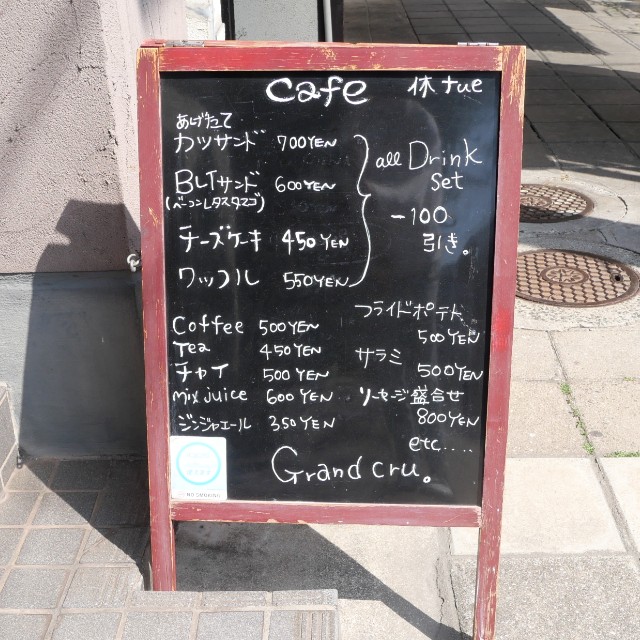 cafe 休 tue
あげたて
カツサンド 700YEN
BLTサンド 600YEN
(ベーコンレタスタマゴ)
チーズケーキ 450YEN
ワッフル 550YEN
all Drink
set
-100
引き。
Coffee 500YEN
Tea 450YEN
チャイ 500YEN
mix juice 600YEN
ジンジャエール 350YEN
フライドポテト
500YEN
サラミ
500YEN
ソーセージ盛合せ
800YEN
etc.....
Grand cru。
NO SMOKING